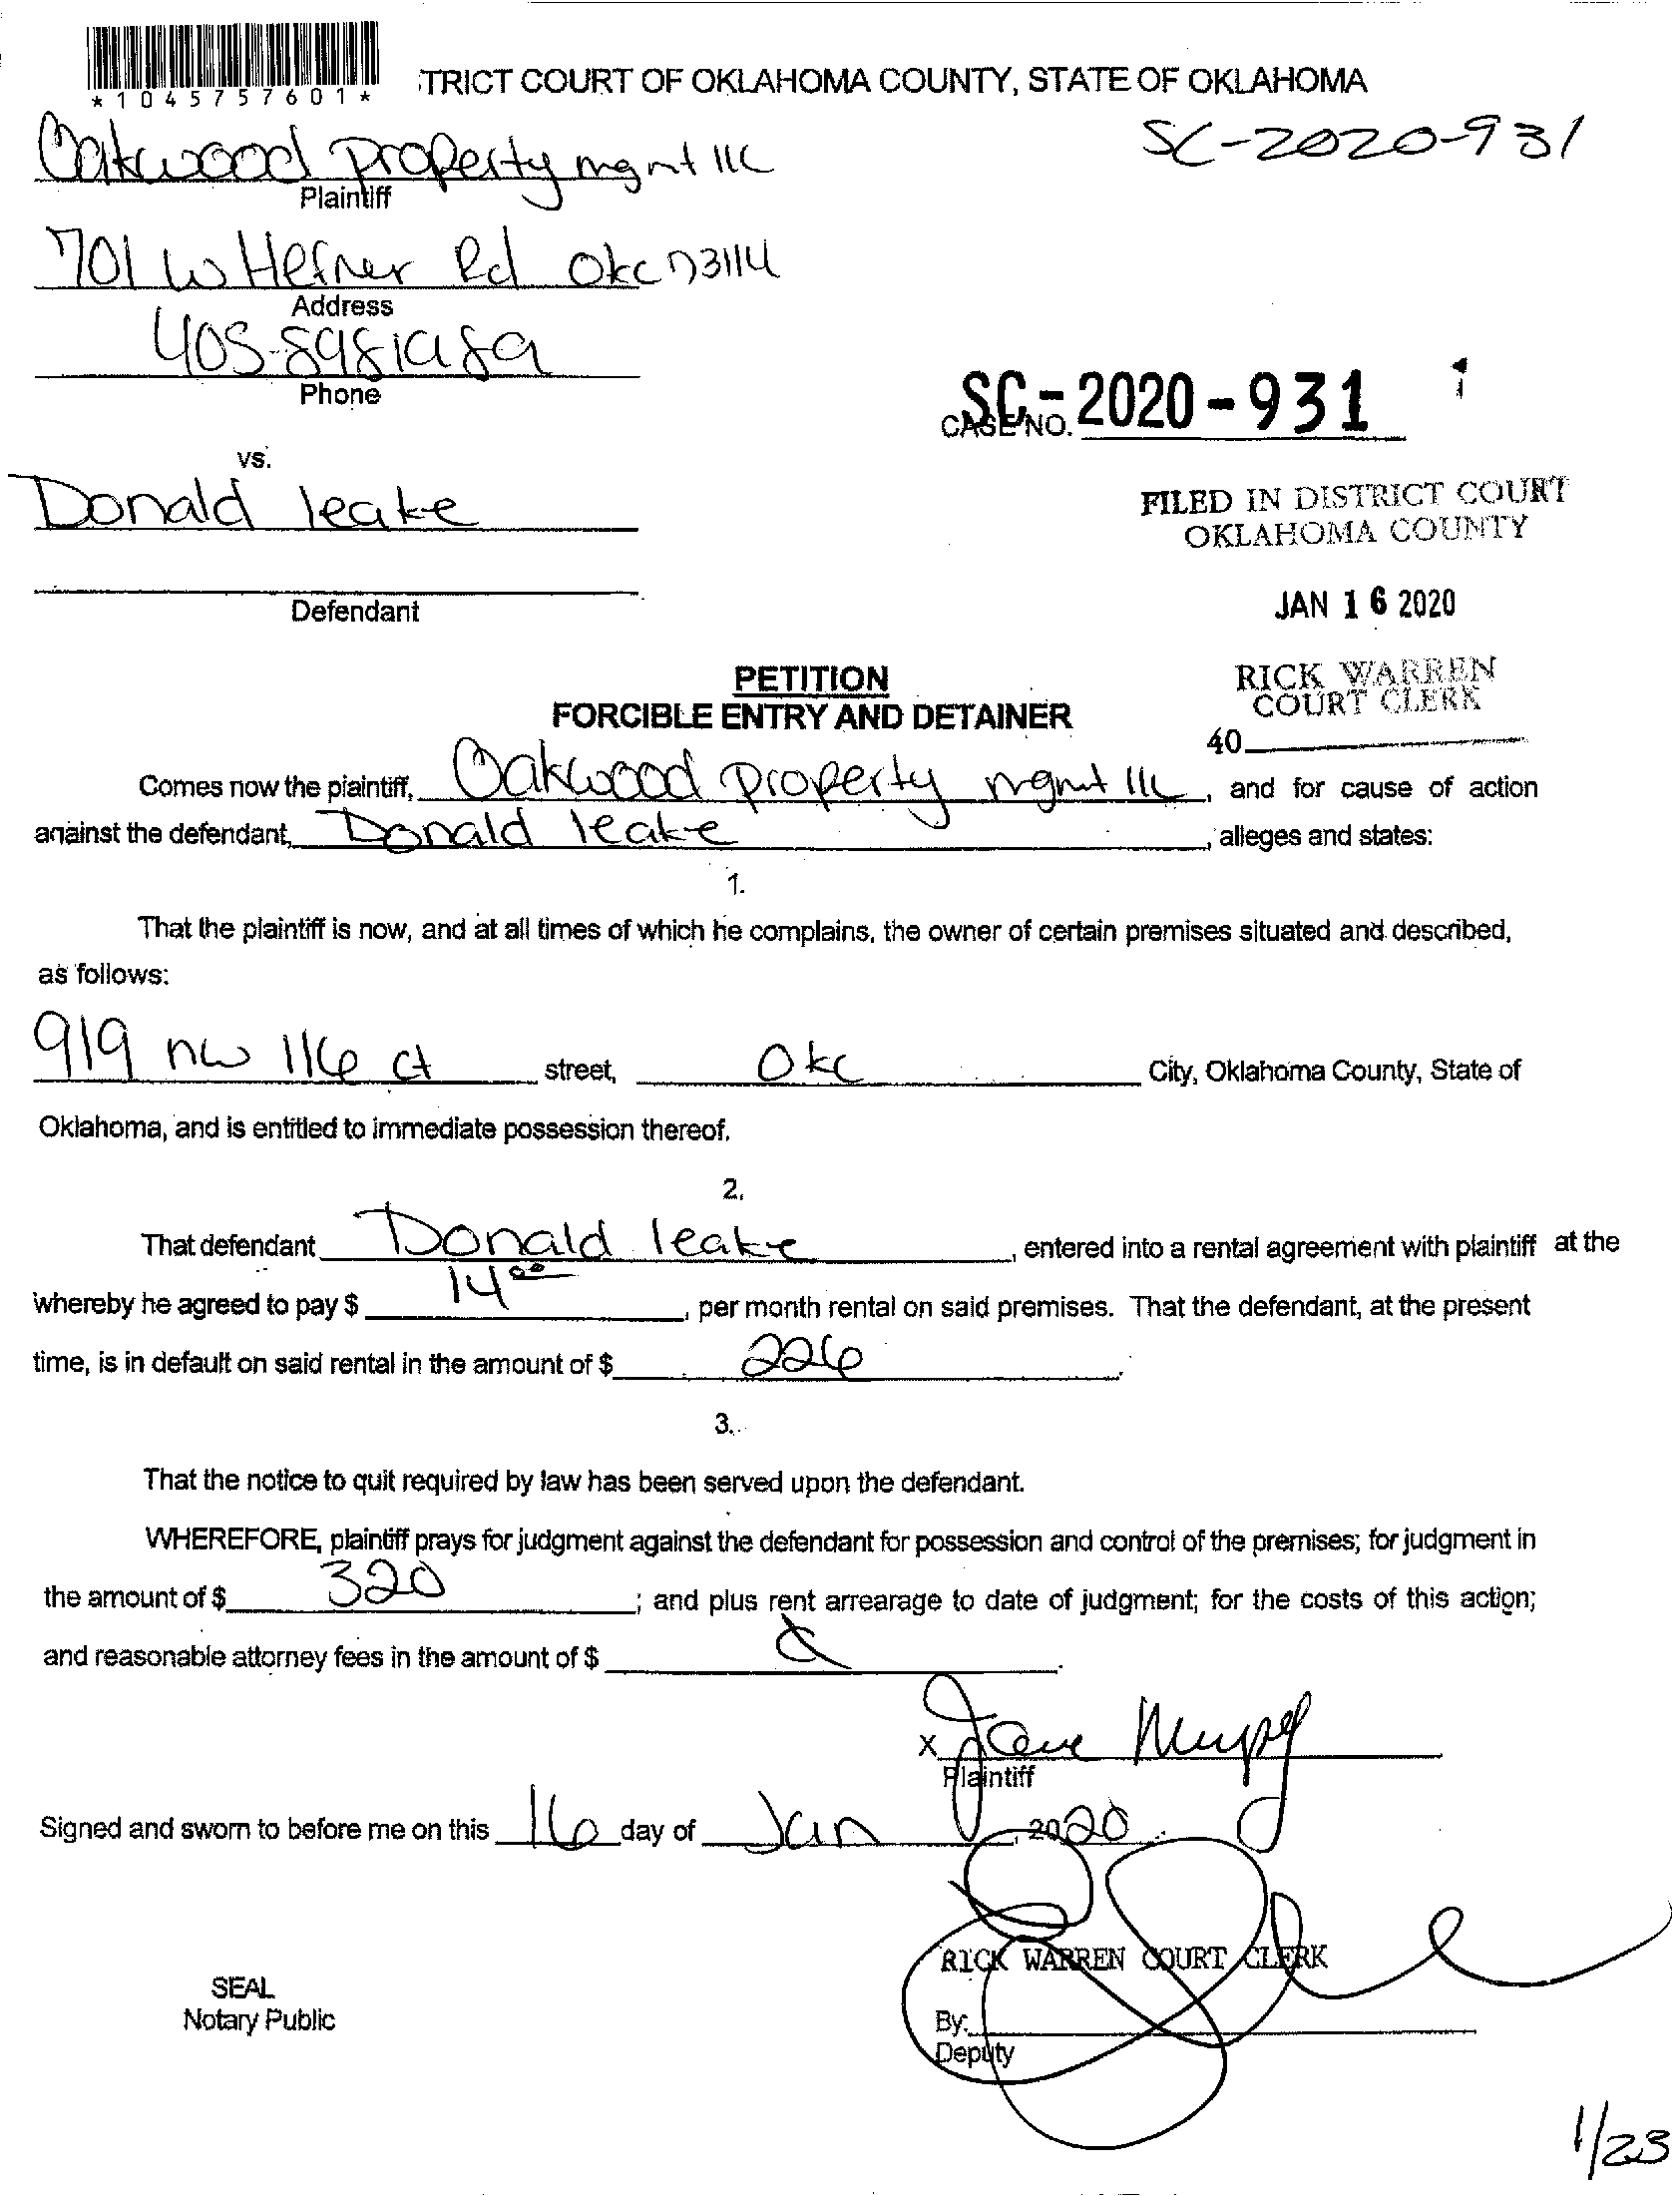 *1045757601*
TRICT COURT OF OKLAHOMA COUNTY, STATE OF OKLAHOMA
SC-2020-931
Oakwood property mgmt llc
Plaintiff
701 W Hefner Rd Okc 73114
Address
Phone
SC-2020-931
CASE NO.
vs.
Donald leake
FILED IN DISTRICT COURT
OKLAHOMA COUNTY
Defendant
JAN 16 2020
PETITION
FORCIBLE ENTRY AND DETAINER
RICK WARREN
COURT CLERK
40
Comes now the plaintiff, Oakwood property mgmt llc, and for cause of action
against the defendant, Donald leake, alleges and states:
1.
That the plaintiff is now, and at all times of which he complains, the owner of certain premises situated and described,
as follows:
919 nw 116 ct street, Okc City, Oklahoma County, State of
Oklahoma, and is entitled to immediate possession thereof.
2.
That defendant Donald leake, entered into a rental agreement with plaintiff at the
whereby he agreed to pay $ 14.00, per month rental on said premises. That the defendant, at the present
time, is in default on said rental in the amount of $ 226.
3.
That the notice to quit required by law has been served upon the defendant.
WHEREFORE, plaintiff prays for judgment against the defendant for possession and control of the premises; for judgment in
the amount of $ 320; and plus rent arrearage to date of judgment; for the costs of this action;
and reasonable attorney fees in the amount of $
X
Plaintiff
Signed and sworn to before me on this 16 day of Jan, 2020
RICK WARREN COURT CLERK
SEAL
Notary Public
By:
Deputy
1/23